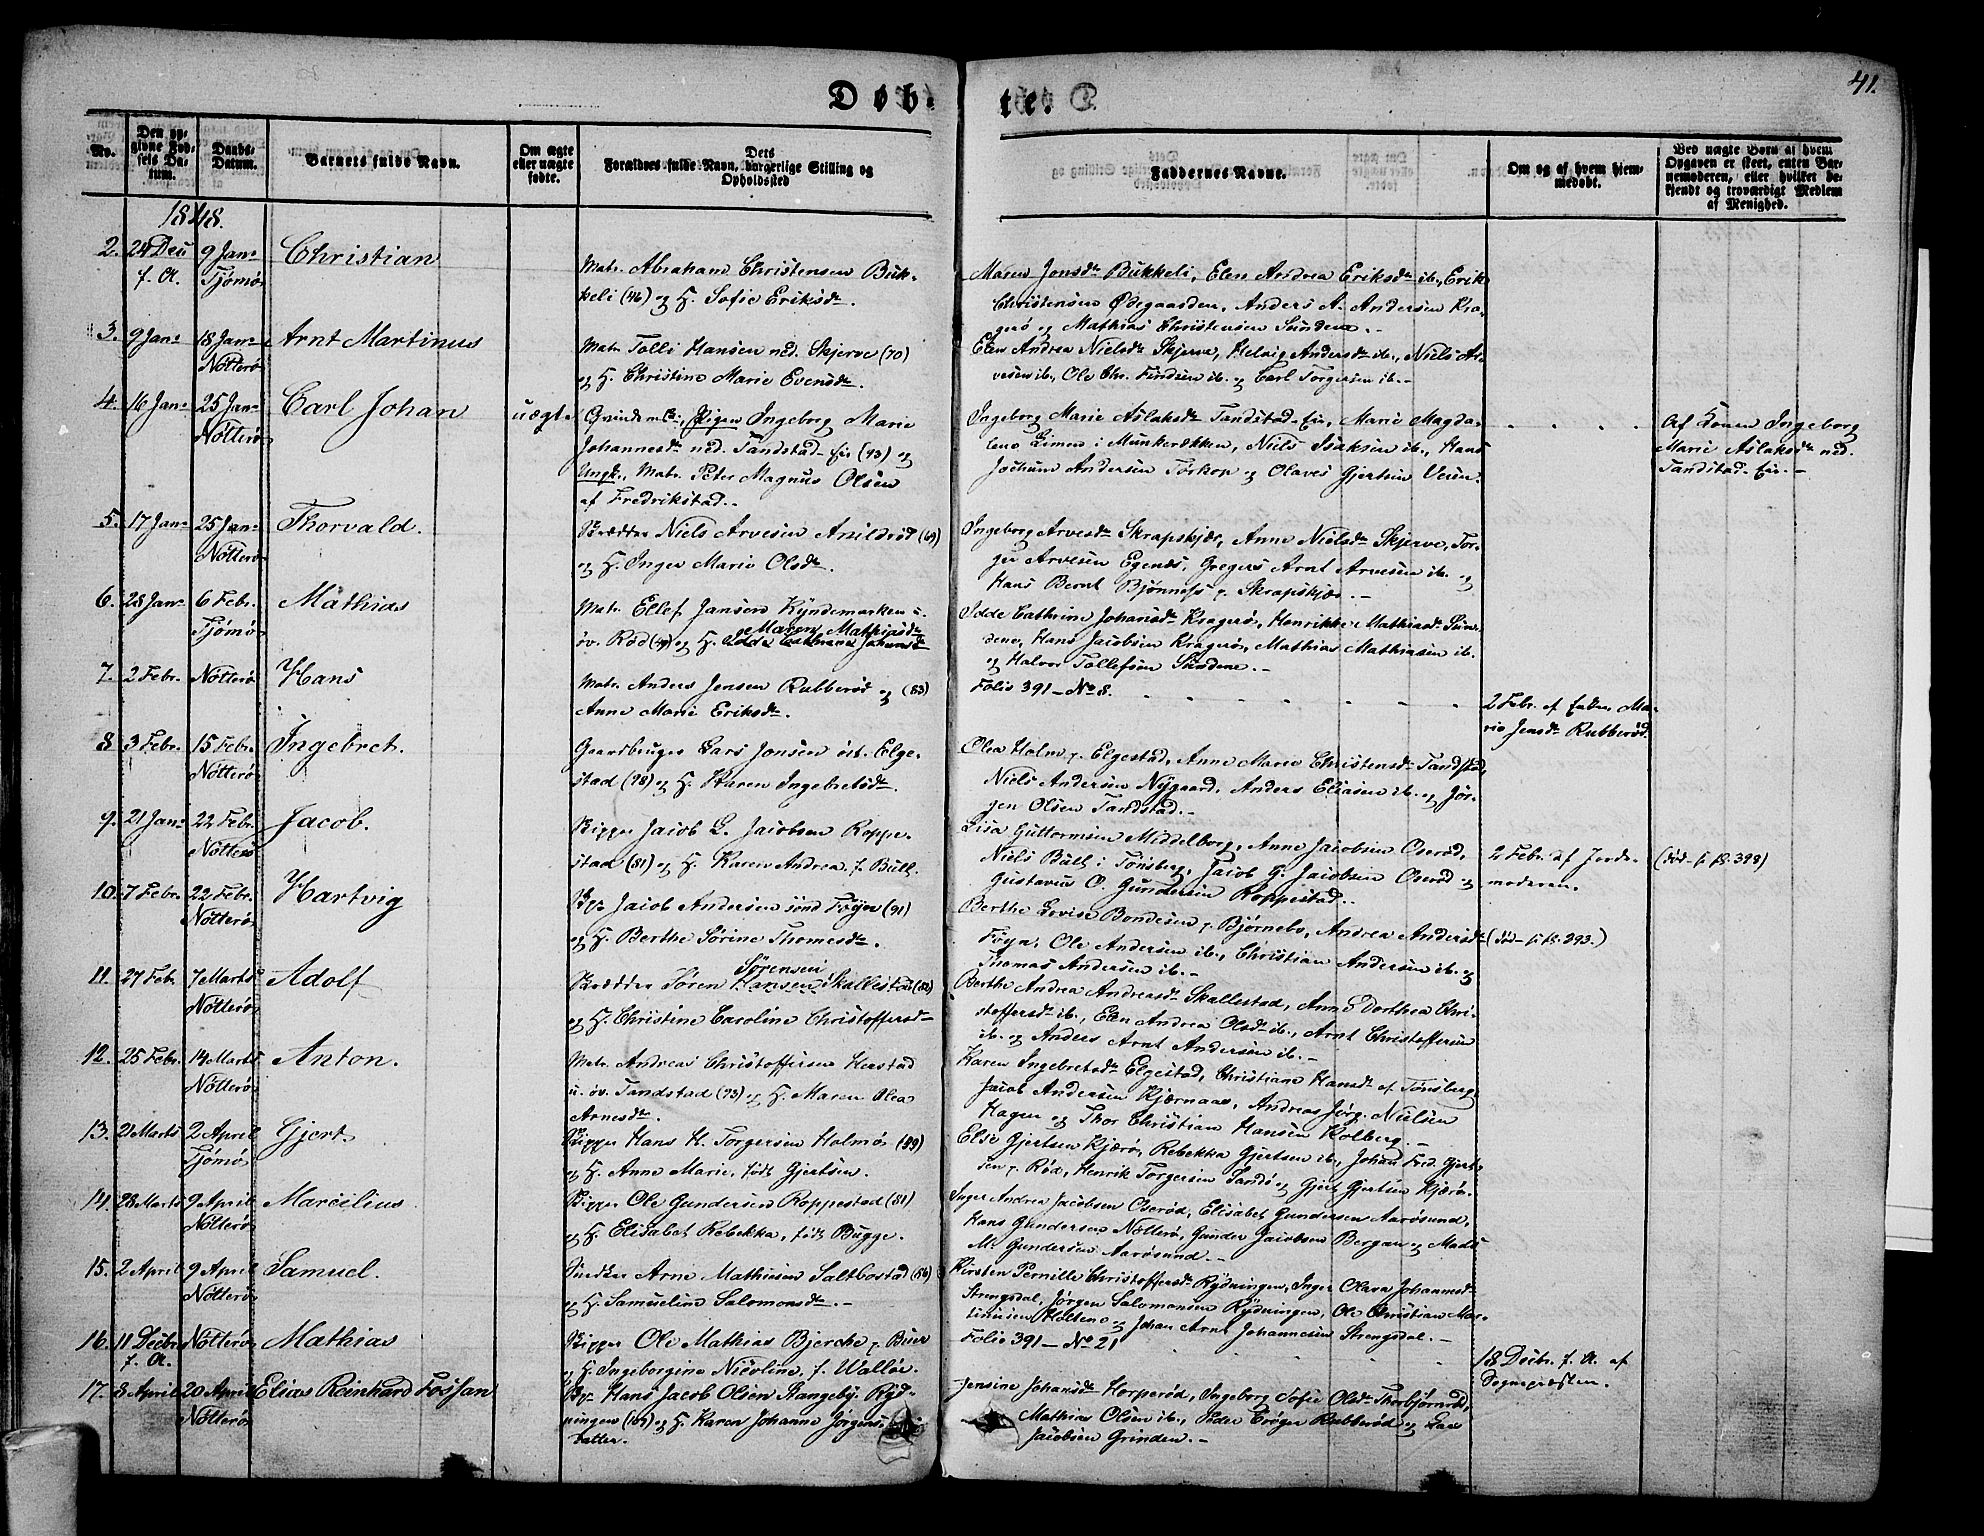 41.
Døb- te.
No.
Den opgivne Fødsels Datum.
Daabs-Datum.
Barnets fulde Navn.
Om ægte eller uægte fødte.
Forældres fulde Navn, Dets borgerlige Stilling og Opholdssted
Faddernes Navne.
Om og af hvem hjemmedøbt.
Ved uægte Børn af hvem Opgaven er skeet, enten Barnemoderen, eller hvilket bekjendt og troværdigt Medlem af Menighed.
1848.
2. 24 Dec f. A. 9 Jan. Tjømø Christian
Matr. Abraham Christensen Buk-
keli (46) og H. Sofie Eriksdr.
Maren Jonsdr Bukkeli, Elen Andrea Eriksdr ib., Erik
Christensen Ødegaarden, Anders A. Andersen Kra-
gerø og Mathias Christensen Sundene.-
3. 9 Jan. 18 Jan. Nøtterø Arnt Martinus
Matr. Tolli Hansen ned. Skjerve (70)
og H. Christine Marie Evensdr.
Elen Andrea Nielsdr Skjerve, Helvig Andersdr ib., Niels Ar-
vesen ib., Ole Chr. Findsen ib. og Carl Torgersen ib.-
4. 16 Jan. 25 Jan. Nøtterø Carl Johan uægte
Pigen Ingeborg Marie
Johannesdr ned. Tandstad-Eie (73) og
Ungk. Matr. Peter Magnus Olsen
af Fredrikstad.-
Ingeborg Marie Aslaksdr Tandstad-Eie, Marie Magda-
lene Simen i Munkerækken, Niels Isaksen ib., Hans
Jochum Andersen Torkop og Olaves Gjertsen Veien.
Af Konen Ingeborg
Marie Aslaksdr ned.
Tandstad-Eie.-
5. 17 Jan. 25 Jan. Nøtterø Thorvald.
Skrædder Niels Arvesen Arildrød (69)
og H. Inger Marie Olsdr.
Ingeborg Arvesdr Skrapskjær, Anne Nielsdr Skjerve, Tor-
ger Arvesen Egenæs, Gregers Arnt Arvesen ib. og
Hans Bernt Bjønness p. Skrapskjær.-
6. 28 Jan. 6 Febr. Tjømø Mathias
Matr. Ellef Jansen Kyndemarken u.
Maren Mathiasdr
öv. Rød (49) og H. Idde Cathrine Johansdr
Idde Cathrine Johansdr Kragerø, Henrikke Mathiasdr Sun-
dene, Hans Jacobsen Kragerø, Mathias Mathiasen ib.
og Halvor Tollefsen Sundene.-
7. 2 Febr. Nøtterø Hans
Matr. Anders Jensen Rubberød og (83)
Anne Marie Eriksdr.
Folio 391 - No 8.
2 Febr. af Enken Ma-
rie Jensdr Rubberød.
8 3 Febr. 15 Febr. Nøtterø Ingebret.
Gaardbruger Lars Jonsen öst. Elge-
stad (78) og H. Karen Ingebretsdr.
Olea Holm p. Elgestad, Anne Marie Christensdr Tandstad,
Niels Andersen Nygaard, Anders Eliasen ib. og Jør-
gen Olsen Tandstad.-
9. 21 Jan. 22 Febr. Nøtterø Jacob.
Skipper Jacob L. Jacobsen Roppe-
stad (81) og H. Karen Andrea, f. Bull.
Lisa Guttormsen Middelborg, Anne Jacobsen Oserød,
Niels Bull i Tønsberg, Jacob G. Jacobsen Oserød og
Gustavus O. Gundersen Roppestad.-
2 Febr. af Jorde-
moderen.
(død - fr. fl. 398)
10. 7 Febr. 22 Febr. Nøtterø Hartvig
Skpr Jacob Andersen sönd Föyn (91)
og H. Berthe Sørine Thomesdr.
Berthe Lovise Bondesen p. Bjørnebo, Andrea Andersdr
Föyn, Ole Andersen ib., Christian Andersen ib. og
Thomas Andersen ib.-
(død - fr. fl. 393.)
11. 27 Feb. 7 Marts Nøtterø Adolf
Sørensen
Skrædder Søren Hansen Skallestad (82)
og H. Christine Caroline Christoffersdr
Berthe Andrea Andreasdr Skallestad, Anne Dorthea Chri-
stoffersdr ib., Elen Andrea Olsdr ib., Arnt Christoffersen
ib. og Anders Arnt Andersen ib.-
12. 25 Febr. 14 Marts Nøtterø Anton.
Matr. Andreas Christoffersen Herstad
u. öv. Tandstad (73) og H. Maren Olea
Arnesdr.
Karen Ingebretsdr Elgestad, Christiane Hansdr af Tønsberg,
Jacob Andersen Kjærnaas, Andreas Jörg. Nielsen
Hagen og Thor Christian Hansen Kolberg.-
13. 21 Marts 2 April Tjømø Gjert.
Skipper Hans H. Torgersen Holmø (49)
og H. Anne Marie, født Gjertsen.
Else Gjertsen Kjærø, Rebekka Gjertsen ib., Johan Fred. Gjert-
sen p. Rød, Henrik Torgersen Sandø og Gjert Gjertsen Kjærø.
14. 28 Marts 9 April Nøtterø Marcelius
Skipper Ole Gundersen Roppestad (81)
og H. Elisabet Rebekka, født Bugge.
Inger Andrea Jacobsen Oserød, Elisabet Gundersen Aarøsund,
Hans Gundersen Nøtterø, Gunder Jacobsen Bergan og Mads
M. Gundersen Aarøsund.-
15. 2 April 9 April Nøtterø Samuel.
Snedker Arne Mathisen Saltbostad (56)
og H. Samueline Salomonsdr.-
Kirsten Pernille Christoffersdr Rydningen, Inger Olava Johannesdr
Strengsdal, Jörgen Salomonsen Rydningen, Ole Christian Mar-
tinusen Holtene og Johan Arnt Johannesen Strengsdal.-
16. 11 Decbr. f. A. Nøtterø Mathias
Skipper Ole Mathias Bjerche p. Buer
og H. Ingeborgine Nicoline, f. Walløe.
Folio 391 - No 21
18 Decbr. f. A. af
Sognepræsten.
17. 8 April 20 April Nøtterø Elias Reinhard Fossan
Skpr. Hans Jacob Olsen Stangeby Ryd-
ningen (107) og H. Karen Johanne Jörgens-
datter.
Jensine Johansdr Horperød, Ingeborg Sofie Olsdr Thorbjørnrød,
Mathias Olsen ib., Peder Trøger Rubberød og Lars
Jacobsen Grinden.-